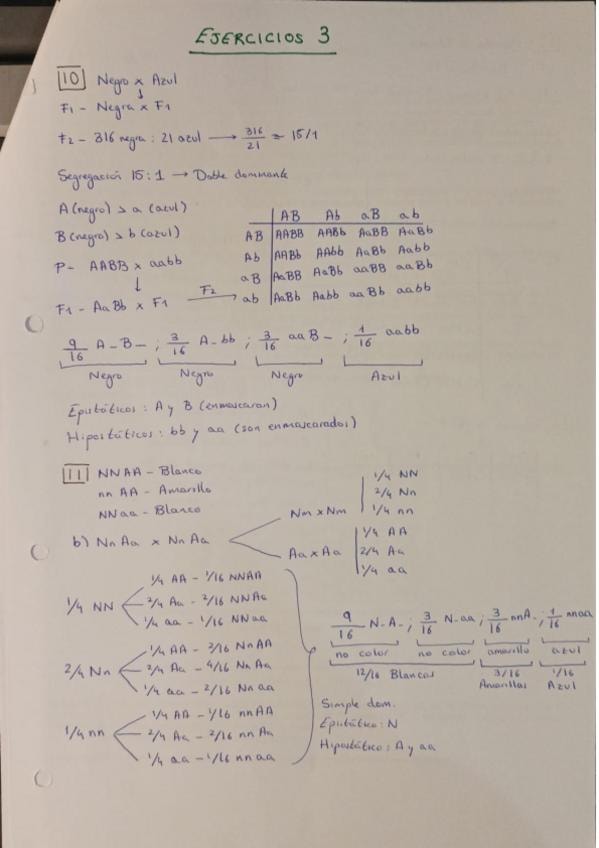 EJERCICIOS 3
10 Negro x Azul
↓
F1 - Negra x F1
F2 - 316 negra : 21 azul → 316/21 = 15/1
Segregación 15:1 → Doble dominante
A (negro) > a (azul)
B (negro) > b (azul)
P - AABB x aabb
↓
F1 - AaBb x F1 F2 →
AB Ab aB ab
AB AABB AABb AaBB AaBb
Ab AABb AAbb AaBb Aabb
aB AaBB AaBb aaBB aaBb
ab AaBb Aabb aaBb aabb
9/16 A-B- ; 3/16 A-bb ; 3/16 aaB- ; 1/16 aabb
Negro Negro Negro Azul
Epistáticos : A y B (enmascaran)
Hipostáticos : bb y aa (son enmascarados)
11 NNAA - Blanco
nn AA - Amarillo
NNaa - Blanco
b) NnAa x NnAa
Nn x Nn
1/4 NN
2/4 Nn
1/4 nn
Aa x Aa
1/4 AA
2/4 Aa
1/4 aa
1/4 NN
1/4 AA - 1/16 NNAA
2/4 Aa - 2/16 NNAa
1/4 aa - 1/16 NNaa
2/4 Nn
1/4 AA - 2/16 NnAA
2/4 Aa - 4/16 NnAa
1/4 aa - 2/16 Nnaa
1/4 nn
1/4 AA - 1/16 nnAA
2/4 Aa - 2/16 nnAa
1/4 aa - 1/16 nnaa
9/16 N-A- ; 3/16 N-aa ; 3/16 nnA- ; 1/16 nnaa
no color no color amarillo azul
12/16 Blancos 3/16 Amarillas 1/16 Azul
Simple dom.
Epistático : N
Hipostático : A y aa